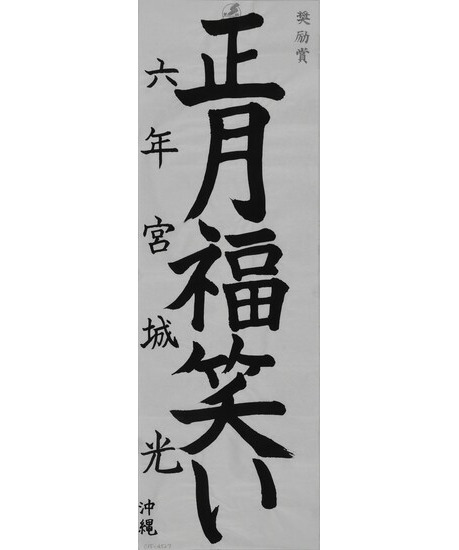 奨励賞
正月福笑い
六年宮城光
沖縄